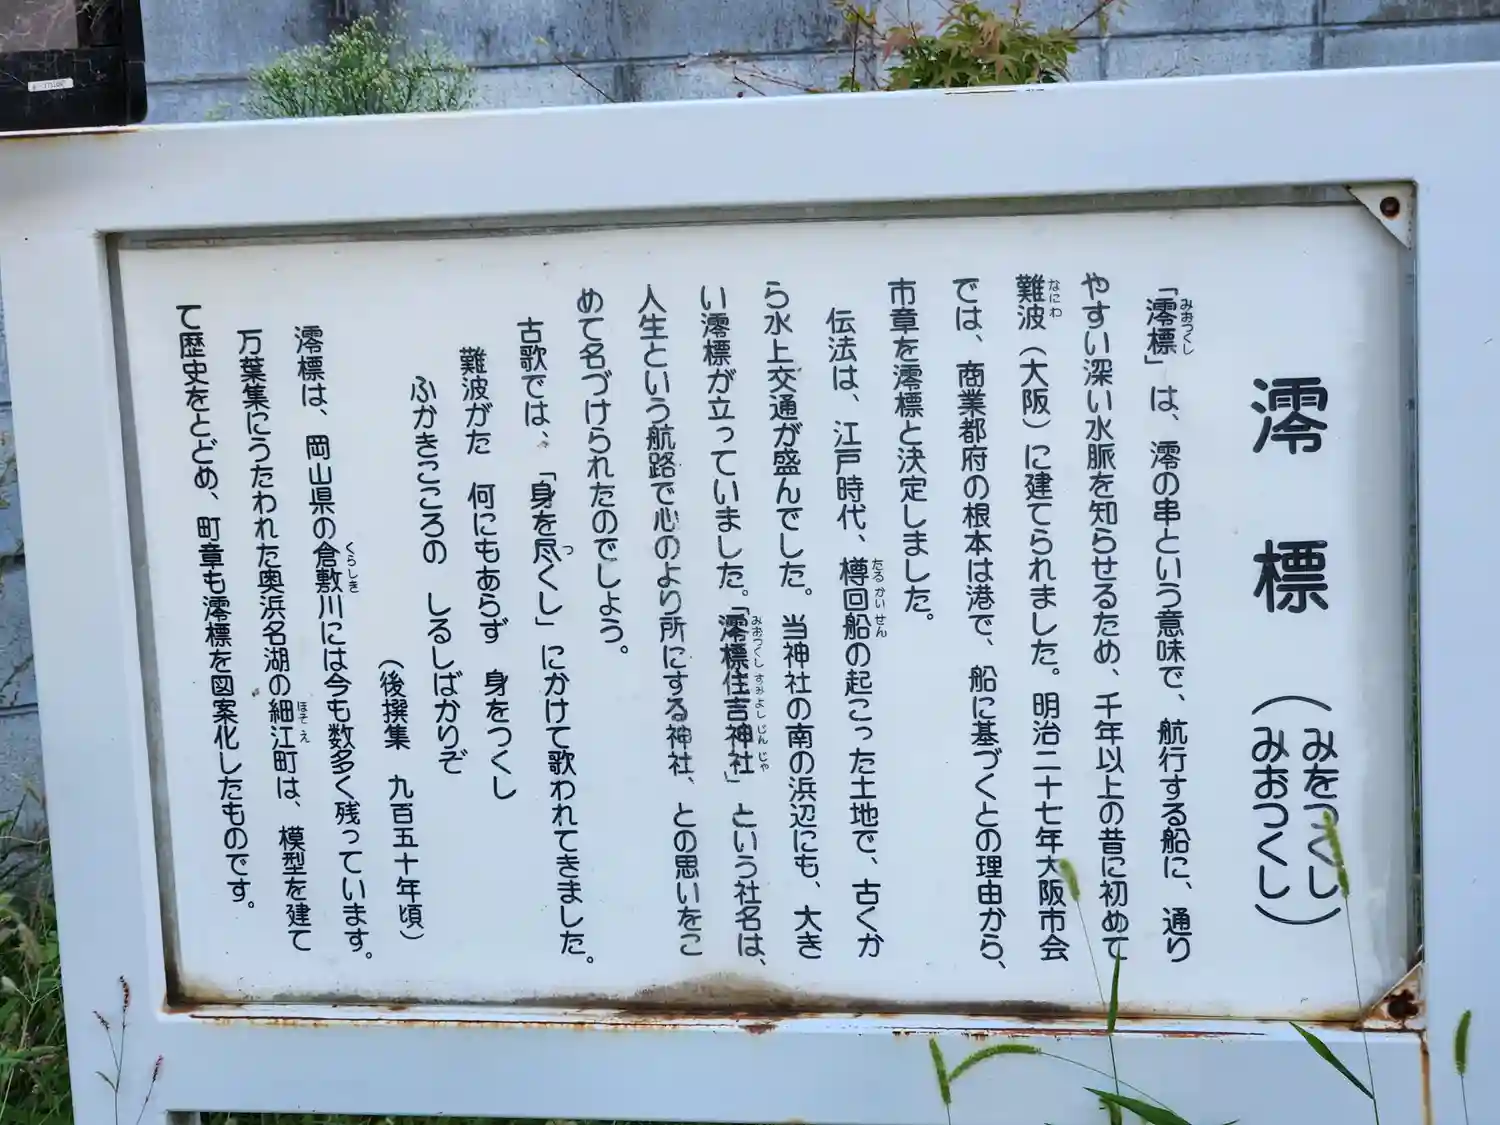 澪標(みをつくし)
(みおつくし)
「澪標」は、澪の串という意味で、航行する船に、通り
みおつくし
やすい深い水脈を知らせるため、千年以上の昔に初めて
難波(大阪)に建てられました。明治二十七年大阪市会
なにわ
では、商業都府の根本は港で、船に基づくとの理由から、
市章を澪標と決定しました。
伝法は、江戸時代、樽回船の起こった土地で、古くか
たるかいせん
ら水上交通が盛んでした。当神社の南の浜辺にも、大き
い澪標が立っていました。「澪標住吉神社」という社名は、
みおつくしすみよしじんじゃ
人生という航路で心のより所にする神社、との思いをこ
めて名づけられたのでしよう。
古歌では、「身を尽くし」にかけて歌われてきました。
つ
難波がた 何にもあらず 身をつくし
ふかきこころの しるしばかりぞ
(後撰集 九百五十年頃)
澪標は、岡山県の倉敷川には今も数多く残っています。
くらしき
万葉集にうたわれた奥浜名湖の細江町は、模型を建て
ほそえ
て歴史をとどめ、町章も澪標を図案化したものです。